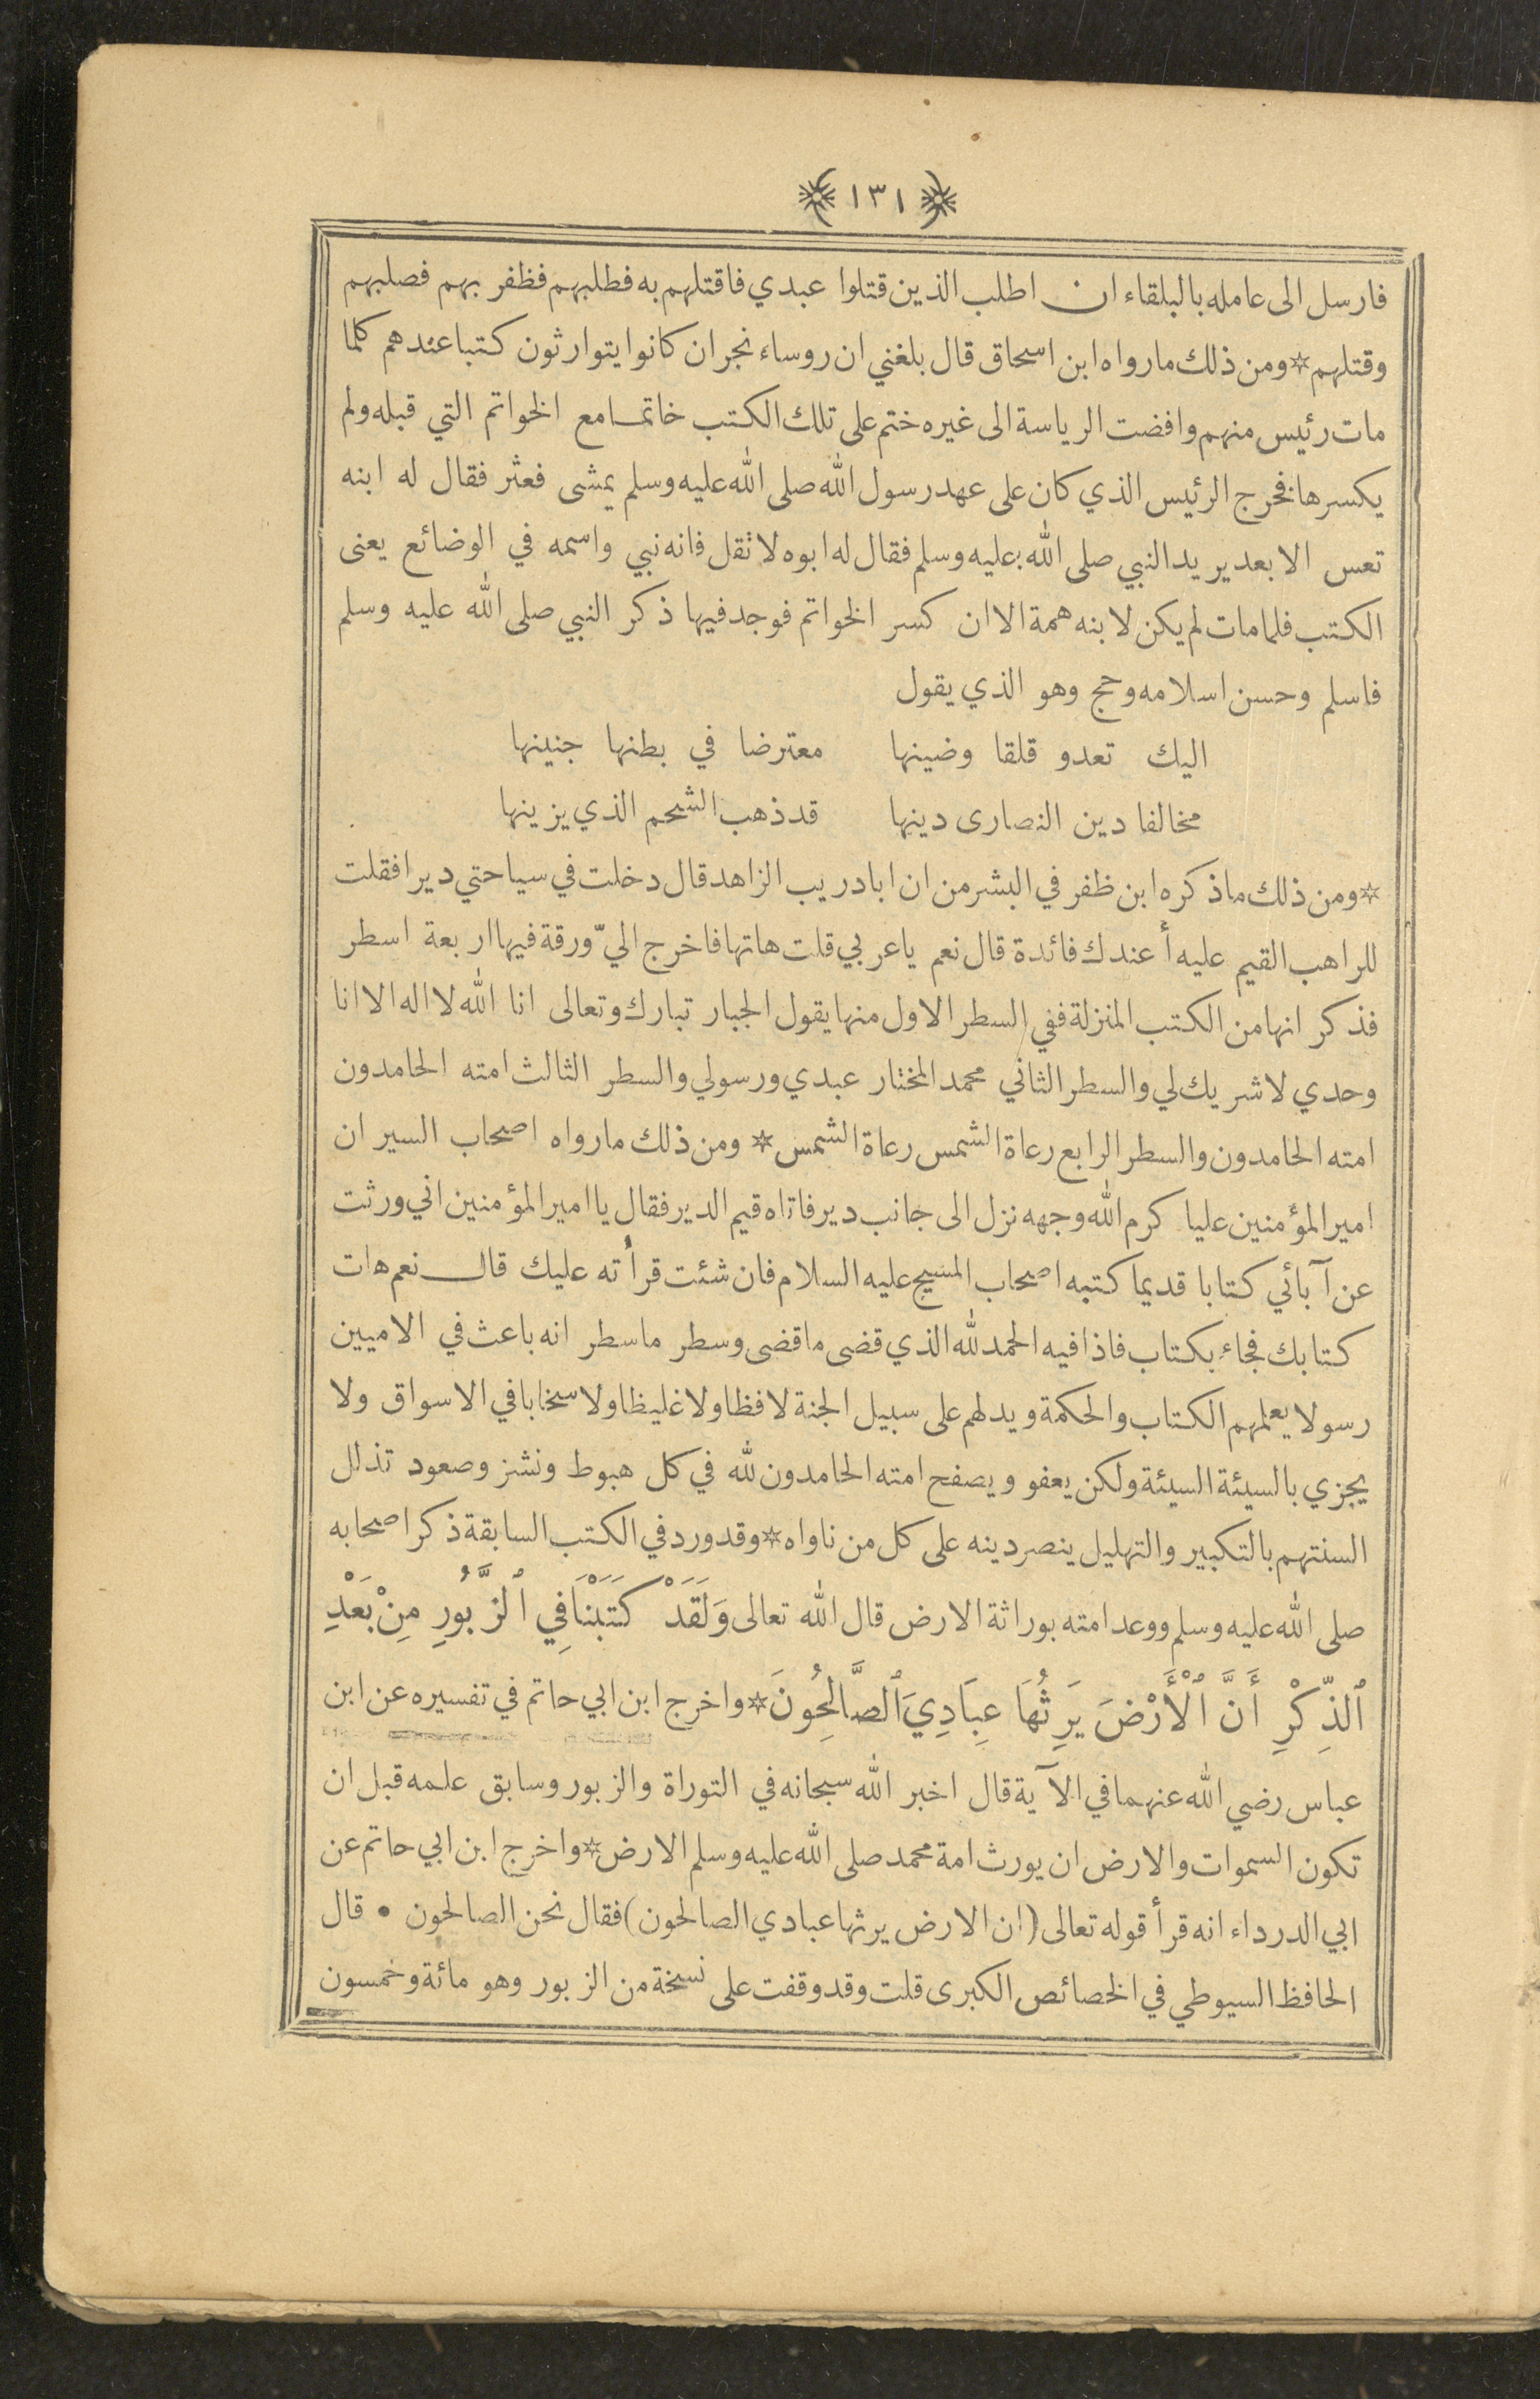 ١٣١
فارسل الى عامله بالبلقاء ان اطلب الذين قتلوا عبدي فاقتلهم به فطلبهم فظفر بهم فصلبهم
وقتلهم * ومن ذلك مارواه ابن اسحاق قال بلغني ان روساء نجران كانوا يتوارثون كتبا عندهم كلما
مات رئيس منهم وافضت الرياسة الى غيره ختم على تلك الكتب خاتما مع الخواتم التي قبله ولم
يكسرها فخرج الرئيس الذي كان على عهد رسول الله صلى الله عليه وسلم يمشى فعثر فقال له ابنه
تعس الابعد يريد النبي صلى الله عليه وسلم فقال له ابوه لا نقل فانه نبي واسمه في الوضائع يعنى
الكتب فلما مات لم يكن لابنه همة الا ان كسر الخواتم فوجد فيها ذكر النبي صلى الله عليه وسلم
فاسلم وحسن اسلامه وحج وهو الذي يقول
اليك تعدو قلقا وضينها معترضا في بطنها جنينها
مخالفا دين النصارى دينها قد ذهب الشحم الذي يزينها
* ومن ذلك ماذكره ابن ظفر في البشر من ان ابا دريب الزاهد قال دخلت في سياحتي ديرا فقلت
للراهب القيم عليه أعندك فائدة قال نعم ياعربي قلت هاتها فاخرج اليّ ورقة فيها اربعة اسطر
فذكر انها من الكتب المنزلة ففي السطر الاول منها يقول الجبار تبارك وتعالى انا الله لا اله الا انا
وحدي لا شريك لي والسطر الثاني محمد المختار عبدي ورسولي والسطر الثالث امته الحامدون
امته الحامدون والسطر الرابع رعاة الشمس رعاة الشمس * ومن ذلك مارواه اصحاب السير ان
امير المؤمنين عليا كرم الله وجهه نزل الى جانب دير فاتاه قيم الدير فقال يا امير المؤمنين اني ورثت
عن آبائي كتابا قديما كتبه اصحاب المسيح عليه السلام فان شئت قرأته عليك قال نعم هات
كتابك فجاء بكتاب فاذا فيه الحمد لله الذي قضى ما قضى وسطر ماسطر انه باعث في الاميين
رسولا يعلمهم الكتاب والحكمة ويدلهم على سبيل الجنة لا فظا ولا غليظا ولا سخابا في الاسواق ولا
يجزي بالسيئة السيئة ولكن يعفو ويصفح امته الحامدون لله في كل هبوط ونشز وصعود تذلل
السنتهم بالتكبير والتهليل ينصر دينه على كل من ناواه * وقد ورد في الكتب السابقة ذكر اصحابه
صلى الله عليه وسلم ووعد امته بوراثة الارض قال الله تعالى وَلَقَدْ كَتَبْنَا فِي ٱلزَّبُورِ مِنْ بَعْدِ
ٱلذِّكْرِ أَنَّ ٱلْأَرْضَ يَرِثُهَا عِبَادِيَ ٱلصَّالِحُونَ * واخرج ابن ابي حاتم في تفسيره عن ابن
عباس رضي الله عنهما في الآية قال اخبر الله سبحانه في التوراة والزبور وسابق علمه قبل ان
تكون السموات والارض ان يورث امة محمد صلى الله عليه وسلم الارض * واخرج ابن ابي حاتم عن
ابي الدرداء انه قرأ قوله تعالى (ان الارض يرثها عبادي الصالحون) فقال نحن الصالحون • قال
الحافظ السيوطي في الخصائص الكبرى قلت وقد وقفت على نسخة من الزبور وهو مائة وخمسون